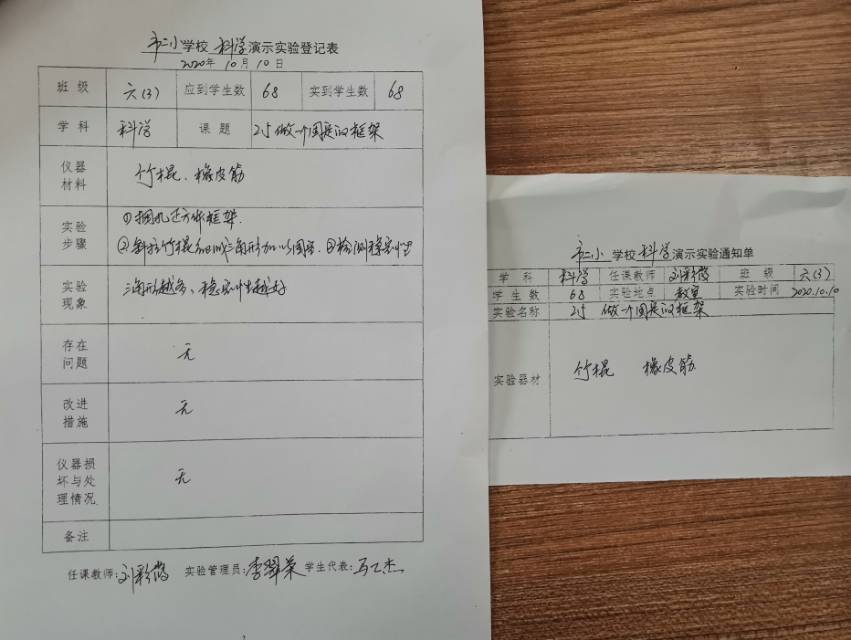 市二小学校 科学演示实验登记表
2020年10月10日
班级 六(3) 应到学生数 68 实到学生数 68
学科 科学 课题 2.5做一个固定的框架
仪器材料 竹棍、橡皮筋
实验步骤 ①捆扎正方体框架.
②斜拉竹棍 三角形加以固定.③检测稳定性
实验现象 三角形越多、稳定性越好
存在问题 无
改进措施 无
仪器损坏与处理情况 无
备注
任课教师:刘彩 实验管理员:李翠荣 学生代表:马
市二小学校科学演示实验通知单
学科 科学 任课教师 刘彩 班级 六(3)
学生数 68 实验地点 教室 实验时间 2020.10.10
实验名称 2.5 做一个固定的框架
实验器材 竹棍 橡皮筋